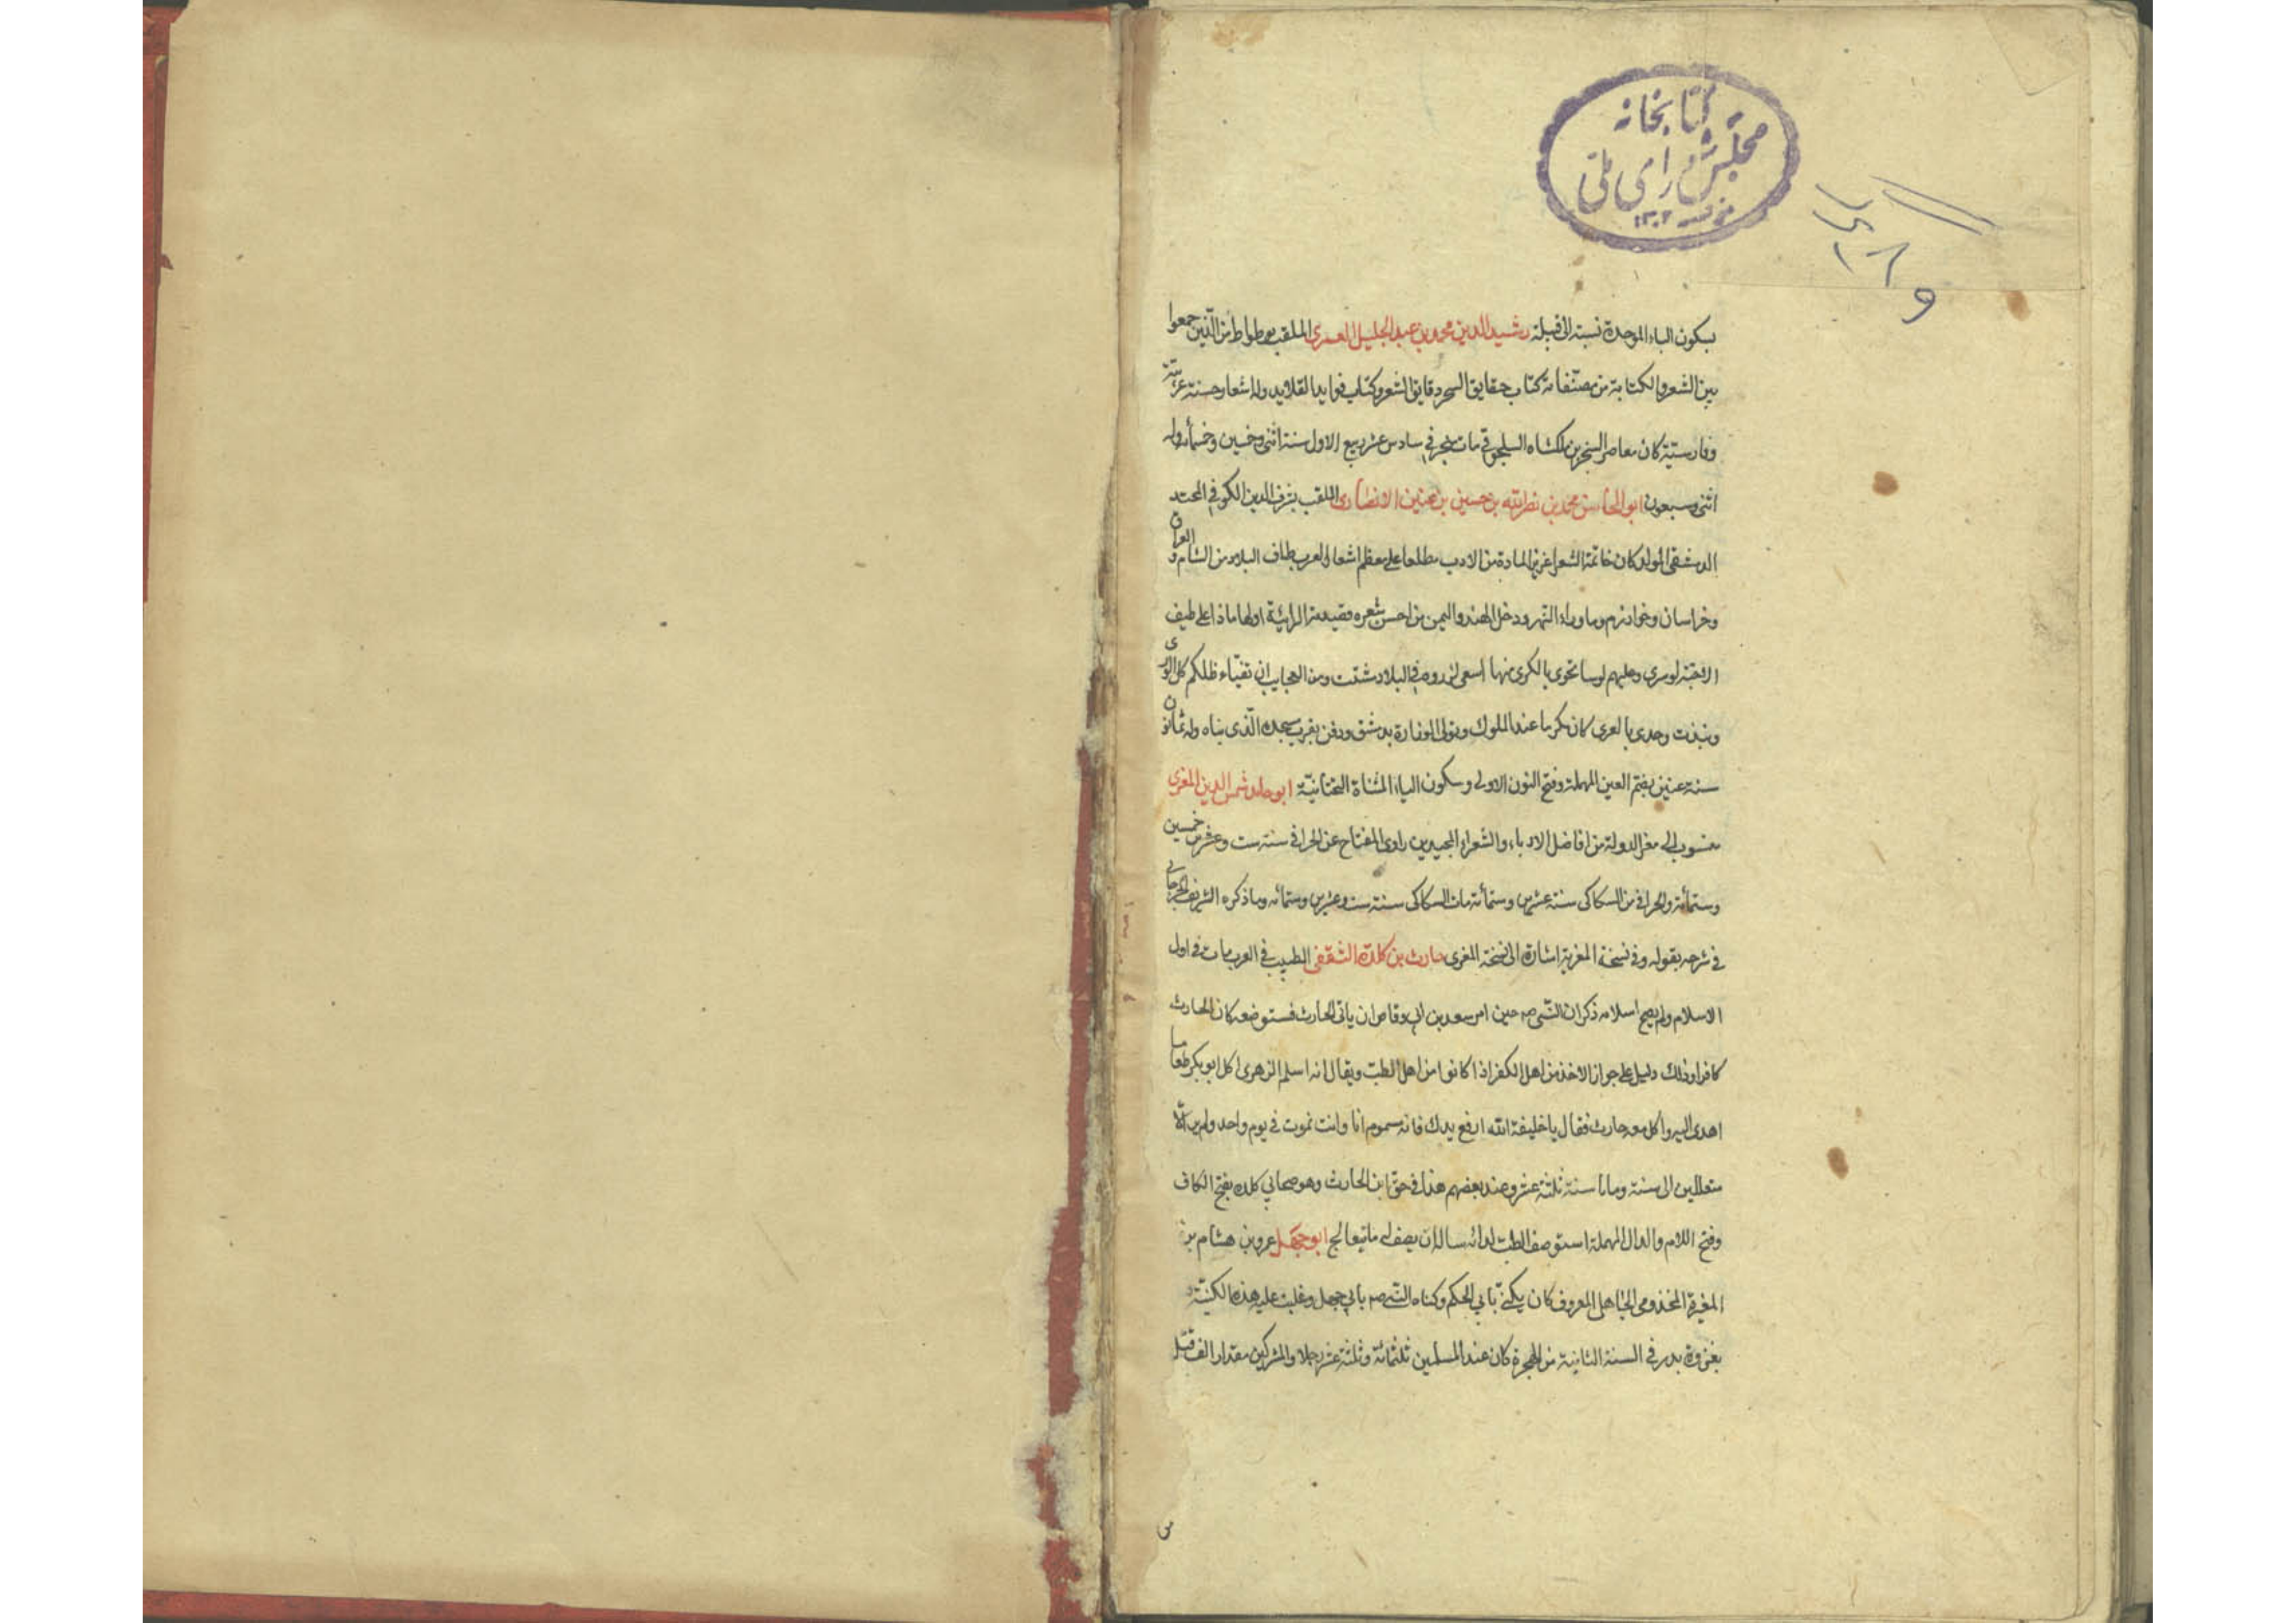 كتابخانه
مجلس شورای ملی
۱۳۰۲
بسكون الباء الموحدة نسبة الى قبيلة رشيد الدين محمد بن عبد الجليل العمرى الملقب بوطواط من الذين جمعوا
بين الشعر والكتابة من مصنفاته كتاب حقايق السحر ودقايق الشعر وكتاب فوايد القلايد وله اشعار حسنة عربية
وفارسية كان معاصر السنجر بن ملكشاه السلجوقى مات سنجر فى سادس عشر ربيع الاول سنة اثنى وخمسين وخمسمأة وله
اثنى وسبعون ابو المحاسن محمد بن نصرالله بن حسين بن عنين الانصارى الملقب بشرف الدين الكوفى المحتد
الدمشقى المولد كان خاتمة الشعرا غزير المادة من الادب مطلعا على معظم اشعار العرب طاف البلاد من الشام والعراق
وخراسان وخوارزم وما وراء النهر ودخل الهند واليمن من احسن شعره قصيدته الرائية اولها ماذا على طيف
الاحبة لو سرى وعليهم لو سامحونى بالكرى منها اسعى لرزق فى البلاد مشتت ومن العجايب ان تفيّاء ظلكم كل الورى
ونبذت وحدى بالعرى كان مكرما عند الملوك وتولى الوزارة بدمشق ودفن بقرب مسجده الذى بناه وله ثمانون
سنة عنين بضم العين المهملة وفتح النون الاولى وسكون الياء المثناة التحتانية ابو حامد شمس الدين المغربى
منسوب الى معز الدولة من افاضل الادباء والشعراء المجيدين راوى المفتاح عن الحرافى سنة ست وعشر خمسين
وستمأئة والحرافى من السكاكى سنة عشرين وستمأئة مات السكاكى سنة ست وعشرين وستمائه وما ذكره الشريف الجرجانى
فى شرحه بقوله وفى نسخة المغربة اشارة الى نسخة المغرى حارث بن كلدة الثقفى الطبيب فى العرب مات فى اول
الاسلام ولم يصح اسلامه ذكر ان النبى صم حين امر سعد بن ابى وقاص ان ياتى الحارث فستوضعه كان الحارث
كافرا وذلك دليل على جواز الاخذ من اهل الكفر اذا كانوا من اهل الطب ويقال انه اسلم الزهرى اكل ابو بكر طعاما
اهدى اليه واكل معه حارث فقال يا خليفة الله ارفع يدك فانه مسموم انا وانت نموت فى يوم واحد ولم يزالا
متعللين الى سنة وماتا سنة ثلثة عشر وعند بعضهم هذا فى حق ابن الحارث وهو صحابى كلدة بفتح الكاف
وفتح اللام والدال المهملة استوصف الطبيب لدائه ساله ان يصف له ما يتعالج ابو جهل عمرو بن هشام بن
المغيرة المخذومى الجاهلى المعروف كان يكنى بابى الحكم وكناه النبى صم بابى جهل وغلبت عليه هذه الكنية
بغزوة بدر فى السنة الثانية من الهجرة كان عند المسلمين ثلثمائة وثلثة عشر رجلا والمشركين مقدار الف قتل